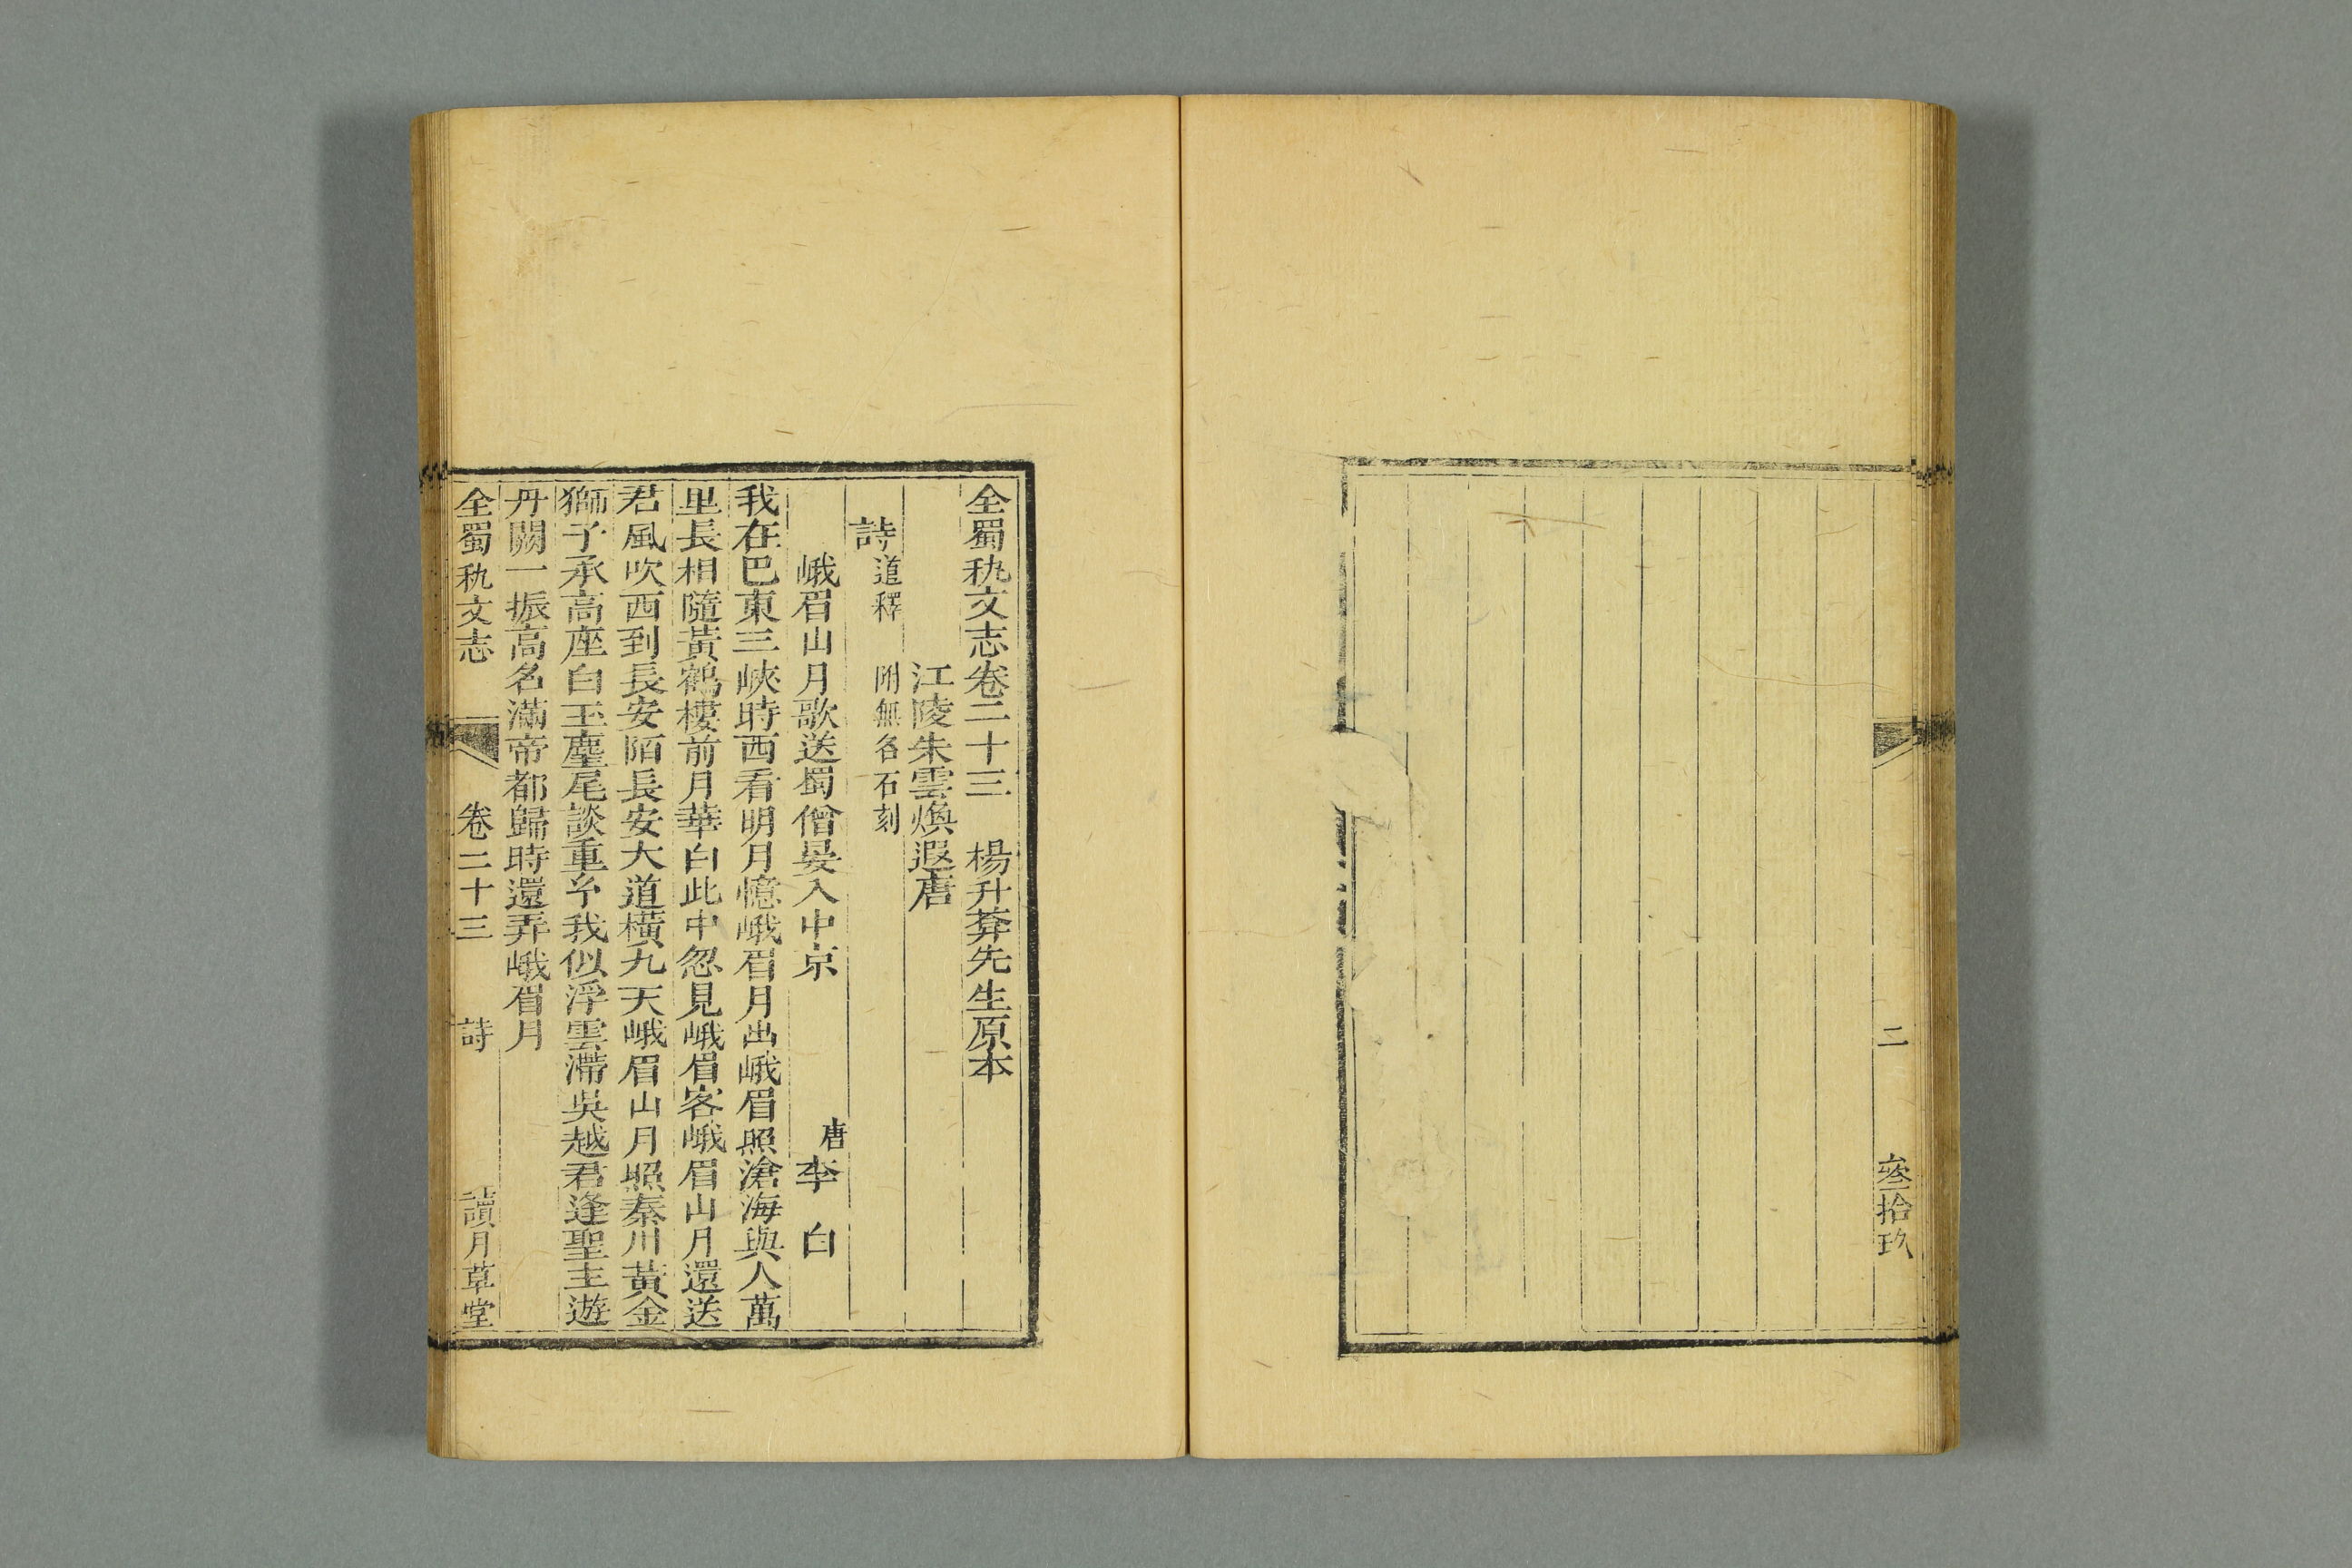 二　叁拾玖
全蜀秇文志卷二十三　楊升菴先生原本
江陵朱雲煥遐唐
詩道釋　附無名石刻
峨眉山月歌送蜀僧晏入中京　唐李白
我在巴東三峽時西看明月憶峨眉月出峨眉照滄海與人萬
里長相隨黃鶴樓前月華白此中忽見峨眉客峨眉山月還送
君風吹西到長安陌長安大道橫九天峨眉山月照秦川黃金
獅子承高座白玉麈尾談重𤣥我似浮雲滯吳越君逢聖主遊
丹闕一振高名滿帝都歸時還弄峨眉月
全蜀秇文志　卷二十三　詩　讀月草堂